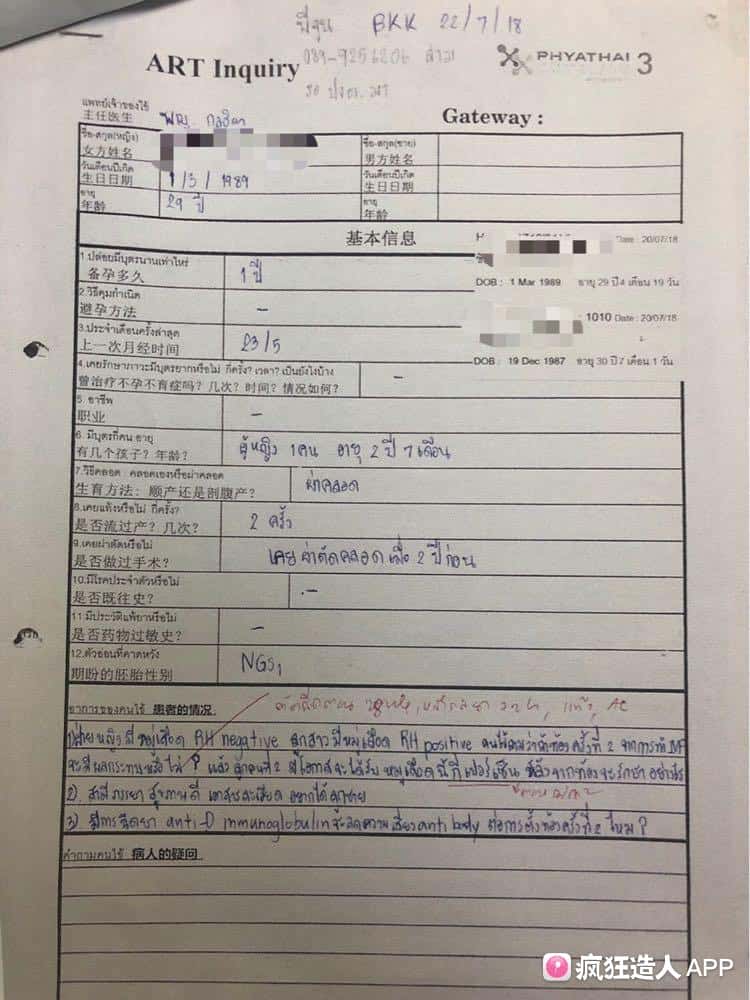 ปีงูน BKK 22/7/18
089-9256206
ART Inquiry
PHYATHAI 3
แพทย์เจ้าของไข้
主任医生
พญ. กุลธิดา
Gateway :
ชื่อ-สกุล(หญิง)
女方姓名
ชื่อ-สกุล(ชาย)
男方姓名
วันเดือนปีเกิด
生日日期
1/3/1989
วันเดือนปีเกิด
生日日期
อายุ
年龄
29 ปี
อายุ
年龄
基本信息
Date : 20/07/18
DOB : 1 Mar 1989 อายุ 29 ปี 4 เดือน 19 วัน
1010 Date : 20/07/18
DOB : 19 Dec 1987 อายุ 30 ปี 7 เดือน 1 วัน
1.ปล่อยมีบุตรนานเท่าไหร่
备孕多久
1 ปี
2.วิธีคุมกำเนิด
避孕方法
-
3.ประจำเดือนครั้งล่าสุด
上一次月经时间
23/5
4.เคยรักษาภาวะมีบุตรยากหรือไม่ กี่ครั้ง? เวลา? เป็นยังไงบ้าง
曾治疗不孕不育症吗？几次？时间？情况如何？
-
5. อาชีพ
职业
-
6. มีบุตรกี่คน อายุ
有几个孩子？年龄？
ผู้หญิง 1 คน อายุ 2 ปี 7 เดือน
7.วิธีคลอด : คลอดเองหรือผ่าคลอด
生育方法：顺产还是剖腹产？
ผ่าคลอด
8.เคยแท้งหรือไม่ กี่ครั้ง?
是否流过产？几次？
2 ครั้ง
9.เคยผ่าตัดหรือไม่
是否做过手术？
เคย ผ่าตัดคลอด เมื่อ 2 ปีก่อน
10.มีโรคประจำตัวหรือไม่
是否既往史？
-
11.มีประวัติแพ้ยาหรือไม่
是否药物过敏史？
-
12.ตัวอ่อนที่คาดหวัง
期盼的胚胎性别
NGS1
อาการของคนไข้ 患者的情况
1) ฝ่ายหญิงมี หมู่เลือด RH negative ลูกสาวมีหมู่เลือด RH positive คนไข้ถามว่าถ้าท้องครั้งที่ 2 จากการทำ IVF
จะมีผลกระทบหรือไม่ ? แล้ว ลูกคนที่ 2 มีโอกาสจะได้รับ หมู่เลือดนี้กี่เปอร์เซ็น หลังจากท้องจะรักษาอย่างไร
2) สามีภรรยา สุขภาพดี อยากได้ลูกชาย
3) มีการฉีดยา anti-D immunoglobulin จะลดความเสี่ยง antibody ต่อการตั้งท้องครั้งที่ 2 ไหม ?
คำถามคนไข้ 病人的疑问
疯狂造人 APP